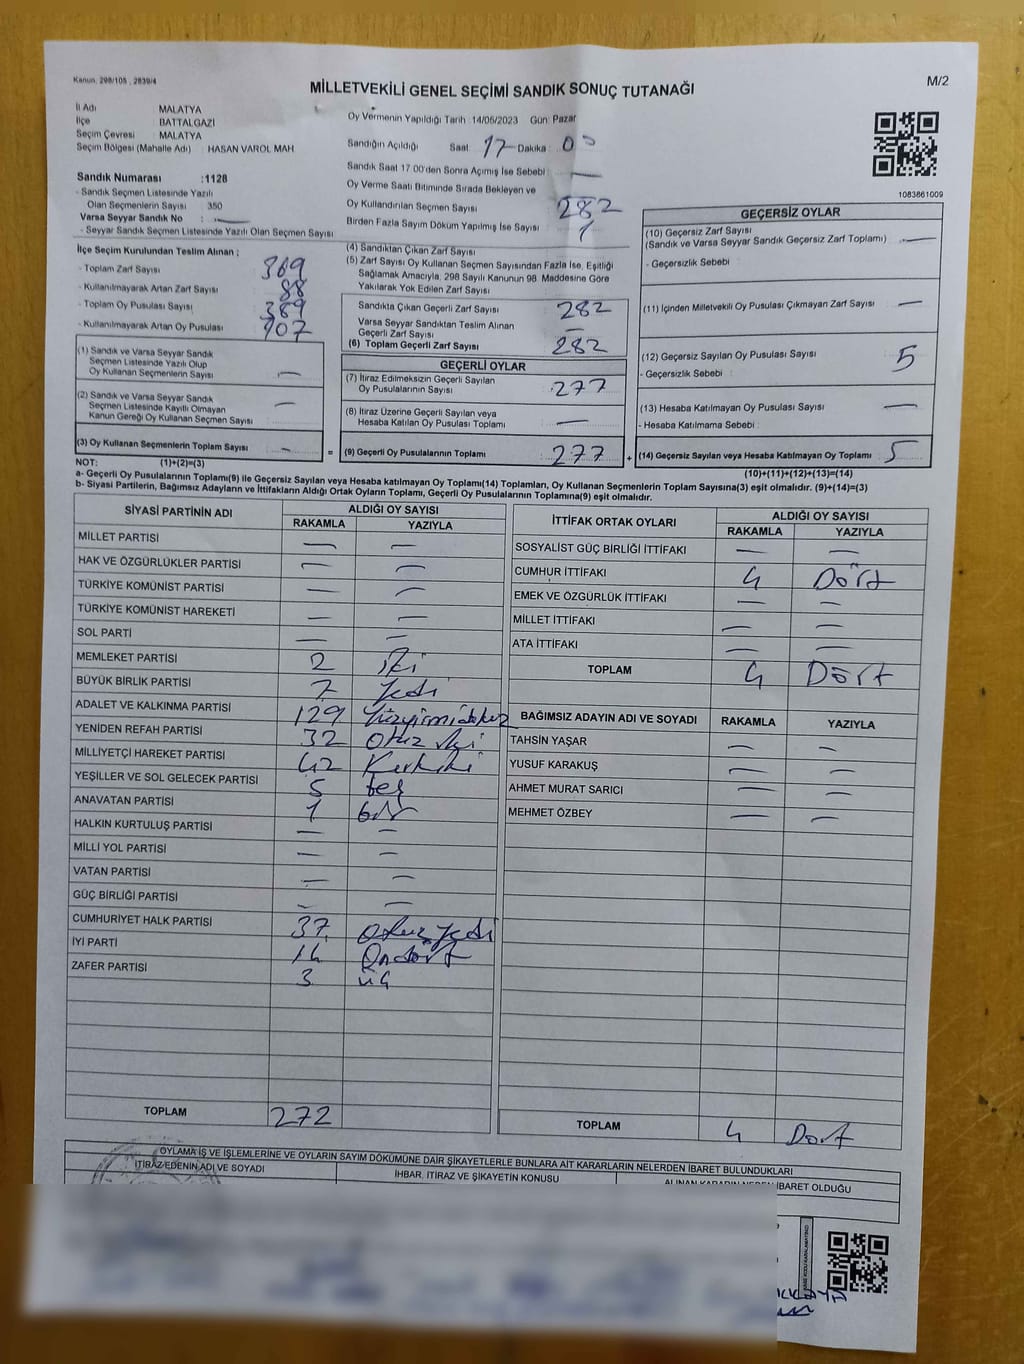 Kanun, 298/105 , 2839/4
MİLLETVEKİLİ GENEL SEÇİMİ SANDIK SONUÇ TUTANAĞI
M/2
İl Adı MALATYA
İlçe BATTALGAZİ
Seçim Çevresi : MALATYA
Seçim Bölgesi (Mahalle Adı) : HASAN VAROL MAH
Sandık Numarası :1128
- Sandık Seçmen Listesinde Yazılı
Olan Seçmenlerin Sayısı : 350
Varsa Seyyar Sandık No : —
- Seyyar Sandık Seçmen Listesinde Yazılı Olan Seçmen Sayısı
Oy Vermenin Yapıldığı Tarih 14/05/2023 Gün: Pazar
Sandığın Açıldığı Saat 17 Dakika : 00
Sandık Saat 17.00'den Sonra Açımış İse Sebebi : —
Oy Verme Saati Bitiminde Sırada Bekleyen ve
Oy Kullandırılan Seçmen Sayısı 282
Birden Fazla Sayım Döküm Yapılmış İse Sayısı 1
1083861009
İlçe Seçim Kurulundan Teslim Alınan ;
- Toplam Zarf Sayısı 369
- Kullanılmayarak Artan Zarf Sayısı 88
- Toplam Oy Pusulası Sayısı 389
- Kullanılmayarak Artan Oy Pusulası 107
(1) Sandık ve Varsa Seyyar Sandık
Seçmen Listesinde Yazılı Olup
Oy Kullanan Seçmenlerin Sayısı —
(2) Sandık ve Varsa Seyyar Sandık
Seçmen Listesinde Kayıtlı Olmayan
Kanun Gereği Oy Kullanan Seçmen Sayısı —
(3) Oy Kullanan Seçmenlerin Toplam Sayısı —
(4) Sandıktan Çıkan Zarf Sayısı
(5) Zarf Sayısı Oy Kullanan Seçmen Sayısından Fazla İse, Eşitliği
Sağlamak Amacıyla, 298 Sayılı Kanunun 98. Maddesine Göre
Yakılarak Yok Edilen Zarf Sayısı
Sandıkta Çıkan Geçerli Zarf Sayısı 282
Varsa Seyyar Sandıktan Teslim Alınan
Geçerli Zarf Sayısı —
(6) Toplam Geçerli Zarf Sayısı 282
GEÇERLİ OYLAR
(7) İtiraz Edilmeksizin Geçerli Sayılan
Oy Pusulalarının Sayısı 277
(8) İtiraz Üzerine Geçerli Sayılan veya
Hesaba Katılan Oy Pusulası Toplamı —
= (9) Geçerli Oy Pusulalarının Toplamı 277 +
GEÇERSİZ OYLAR
(10) Geçersiz Zarf Sayısı
(Sandık ve Varsa Seyyar Sandık Geçersiz Zarf Toplamı) —
- Geçersizlik Sebebi :
(11) İçinden Milletvekili Oy Pusulası Çıkmayan Zarf Sayısı —
(12) Geçersiz Sayılan Oy Pusulası Sayısı 5
- Geçersizlik Sebebi :
(13) Hesaba Katılmayan Oy Pusulası Sayısı —
- Hesaba Katılmama Sebebi :
(14) Geçersiz Sayılan veya Hesaba Katılmayan Oy Toplamı 5
NOT: (1)+(2)=(3) (10)+(11)+(12)+(13)=(14)
a- Geçerli Oy Pusulalarının Toplamı(9) ile Geçersiz Sayılan veya Hesaba katılmayan Oy Toplamı(14) Toplamları, Oy Kullanan Seçmenlerin Toplam Sayısına(3) eşit olmalıdır. (9)+(14)=(3)
b- Siyasi Partilerin, Bağımsız Adayların ve İttifakların Aldığı Ortak Oyların Toplamı, Geçerli Oy Pusulalarının Toplamına(9) eşit olmalıdır.
SİYASİ PARTİNİN ADI ALDIĞI OY SAYISI
RAKAMLA YAZIYLA
MİLLET PARTİSİ — —
HAK VE ÖZGÜRLÜKLER PARTİSİ — —
TÜRKİYE KOMÜNİST PARTİSİ — —
TÜRKİYE KOMÜNİST HAREKETİ — —
SOL PARTİ — —
MEMLEKET PARTİSİ 2 iki
BÜYÜK BİRLİK PARTİSİ 7 yedi
ADALET VE KALKINMA PARTİSİ 129 Yüzyirmidokuz
YENİDEN REFAH PARTİSİ 32 otuz iki
MİLLİYETÇİ HAREKET PARTİSİ 42 Kırkiki
YEŞİLLER VE SOL GELECEK PARTİSİ 5 beş
ANAVATAN PARTİSİ 1 bir
HALKIN KURTULUŞ PARTİSİ — —
MİLLİ YOL PARTİSİ — —
VATAN PARTİSİ — —
GÜÇ BİRLİĞİ PARTİSİ — —
CUMHURİYET HALK PARTİSİ 37 otuz yedi
İYİ PARTİ 14 Ondört
ZAFER PARTİSİ 3 üç
TOPLAM 272
İTTİFAK ORTAK OYLARI ALDIĞI OY SAYISI
RAKAMLA YAZIYLA
SOSYALİST GÜÇ BİRLİĞİ İTTİFAKI — —
CUMHUR İTTİFAKI 4 Dört
EMEK VE ÖZGÜRLÜK İTTİFAKI — —
MİLLET İTTİFAKI — —
ATA İTTİFAKI — —
TOPLAM 4 Dört
BAĞIMSIZ ADAYIN ADI VE SOYADI RAKAMLA YAZIYLA
TAHSİN YAŞAR — —
YUSUF KARAKUŞ — —
AHMET MURAT SARICI — —
MEHMET ÖZBEY — —
TOPLAM 4 Dört
OYLAMA İŞ VE İŞLEMLERİNE VE OYLARIN SAYIM DÖKÜMÜNE DAİR ŞİKAYETLERLE BUNLARA AİT KARARLARIN NELERDEN İBARET BULUNDUKLARI
İTİRAZ EDENİN ADI VE SOYADI İHBAR, İTİRAZ VE ŞİKAYETİN KONUSU ALINAN KARARIN NEDEN İBARET OLDUĞU